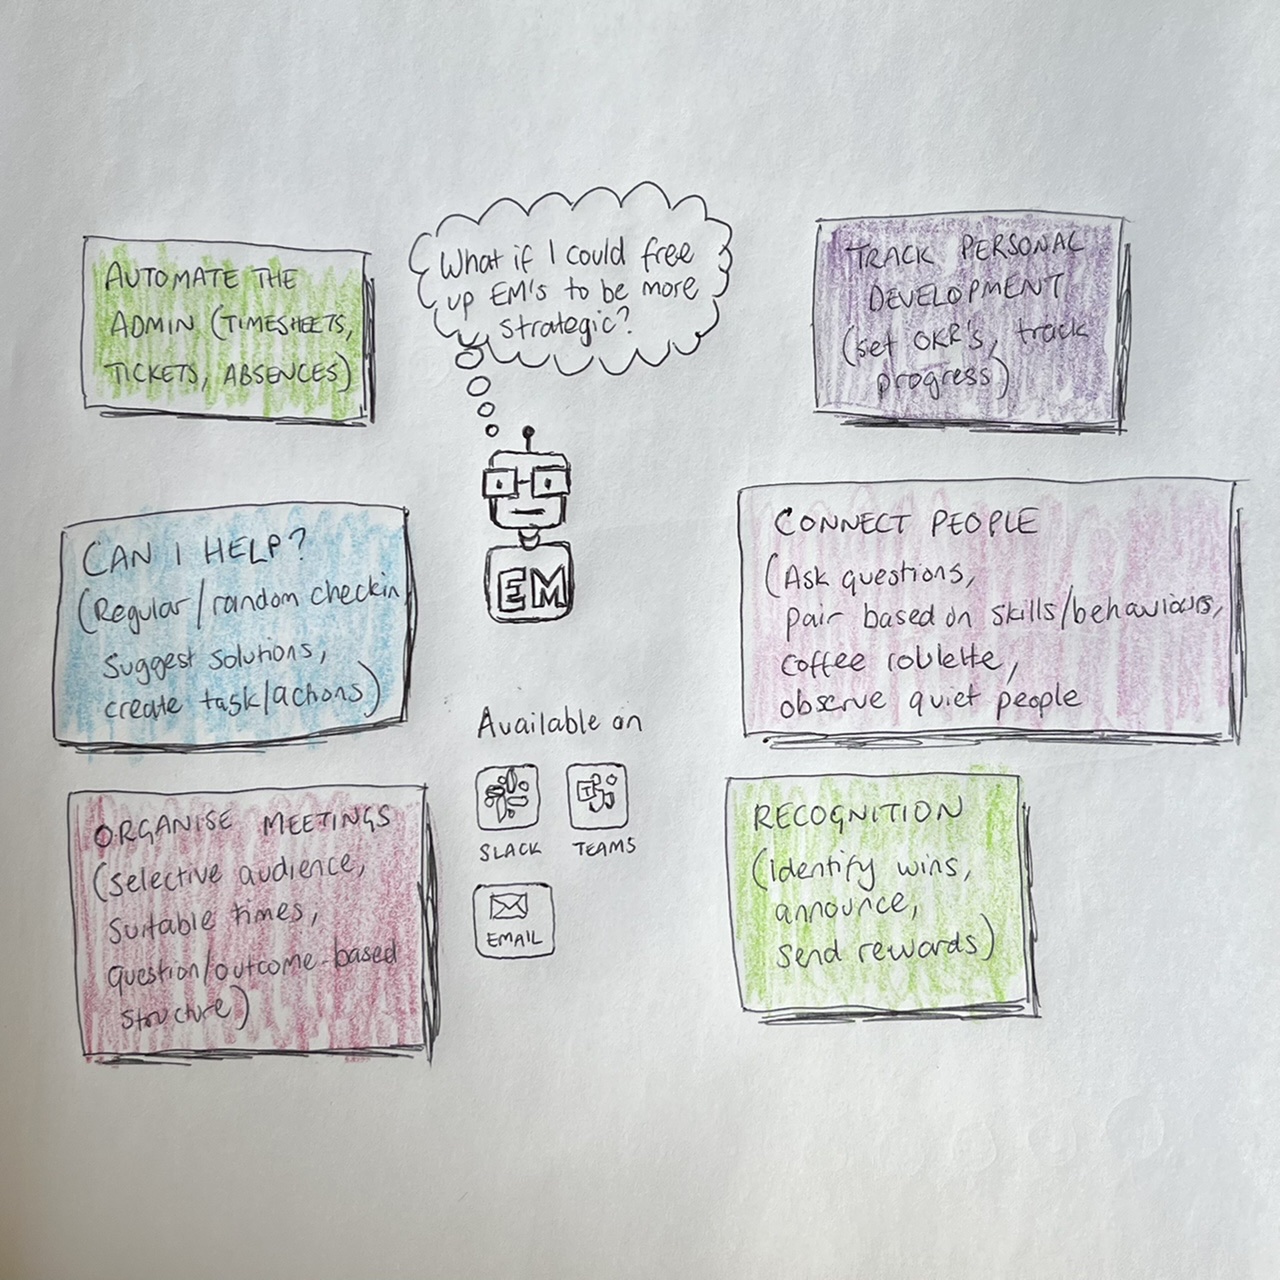 AUTOMATE THE
ADMIN (TIMESHEETS,
TICKETS, ABSENCES)
What if I could free
up EM's to be more
strategic?
TRACK PERSONAL
DEVELOPMENT
(set OKR's, track
progress)
CAN I HELP?
(Regular/random checkin
suggest solutions,
create task/actions)
EM
CONNECT PEOPLE
(Ask questions,
pair based on skills/behaviours,
coffee roulette,
observe quiet people
ORGANISE MEETINGS
(selective audience,
suitable times,
question/outcome-based
structure)
Available on
SLACK
TEAMS
EMAIL
RECOGNITION
(Identify wins,
announce,
send rewards)